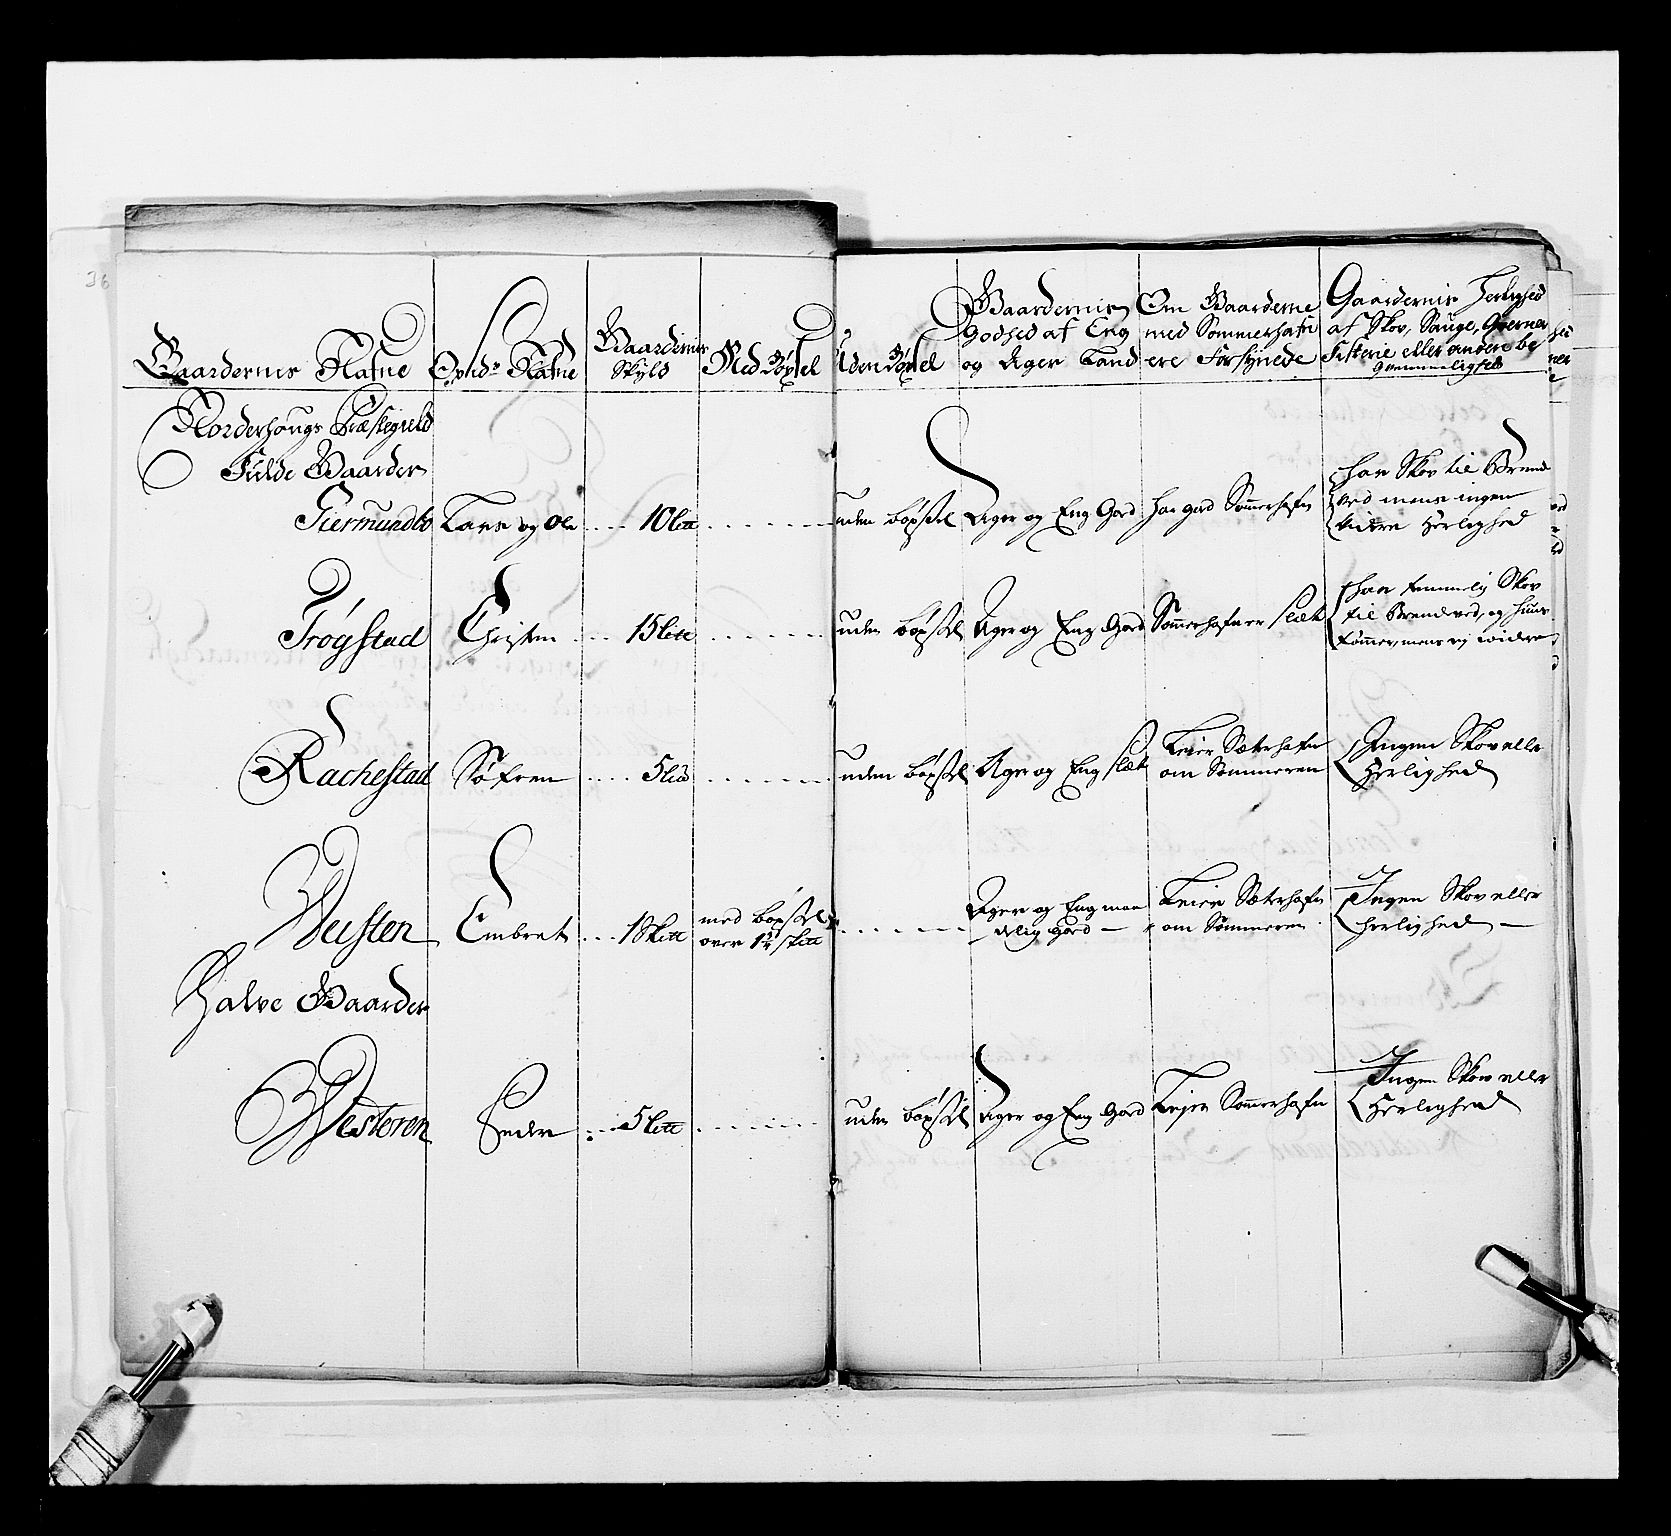 36
Gaardernis Nafne
Nafne
Gaardernis
Skyld
Med Bøxel
Uden Bøxel
Gaardernis
Godhed af Eng
og Ager Land
Om Gaarderne
med Sommerhafn
ere Forsynede
Gaardernis Herlighed
af Skov, Sauge, Qverner
Fisterie eller andere be
qvemmelighed
Norderhougs Præstegield
Fulde Gaarder
Giermundbo Lars og Ole 10 Lis uden bøxsel Ager og Eng God har god Sommerhafn
har Skov til Brend
ved mens ingen
videre Herlighed
Trøgstad Christen 15 Lis uden bøxsel Ager og Eng God Sommerhafn er slæt
har temmelig Skov
til Brendeved, og Huus
tømmer, mens ej widere
Rachestad Søfren 5 Lis uden bøxsel Ager og Eng slæt
Leier Sæterhafn
om Sommeren
Ingen Skov eller
Herlighed
Weisten Embret 1 Skill
med bøxsel
over 1½ skill
Ager og Eng maa
delig God
Leier Sæterhafn
om Sommeren
Ingen Skov eller
herlighed
Halve Gaarder
Westeren Peder 5 Lis uden bøxsel Ager og Eng God Lejer Sommerhafn
Ingen Skov eller
Herlighed